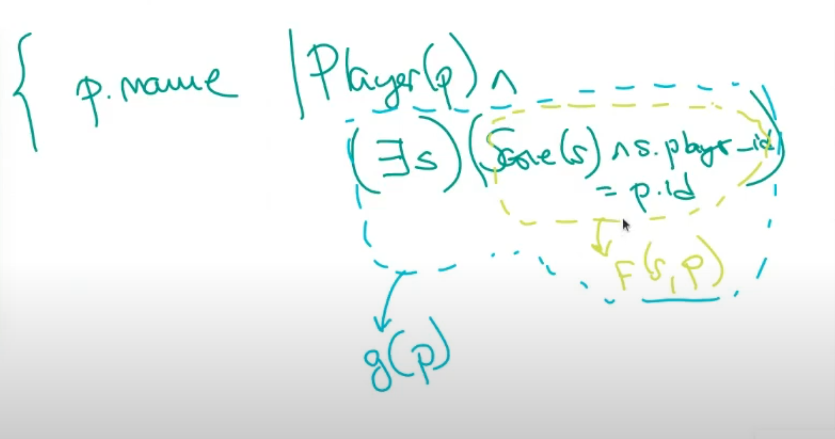 { p.name | Player(p) ∧
(∃s)(Score(s) ∧ s.player_id
= p.id)
F(s,p)
g(p)